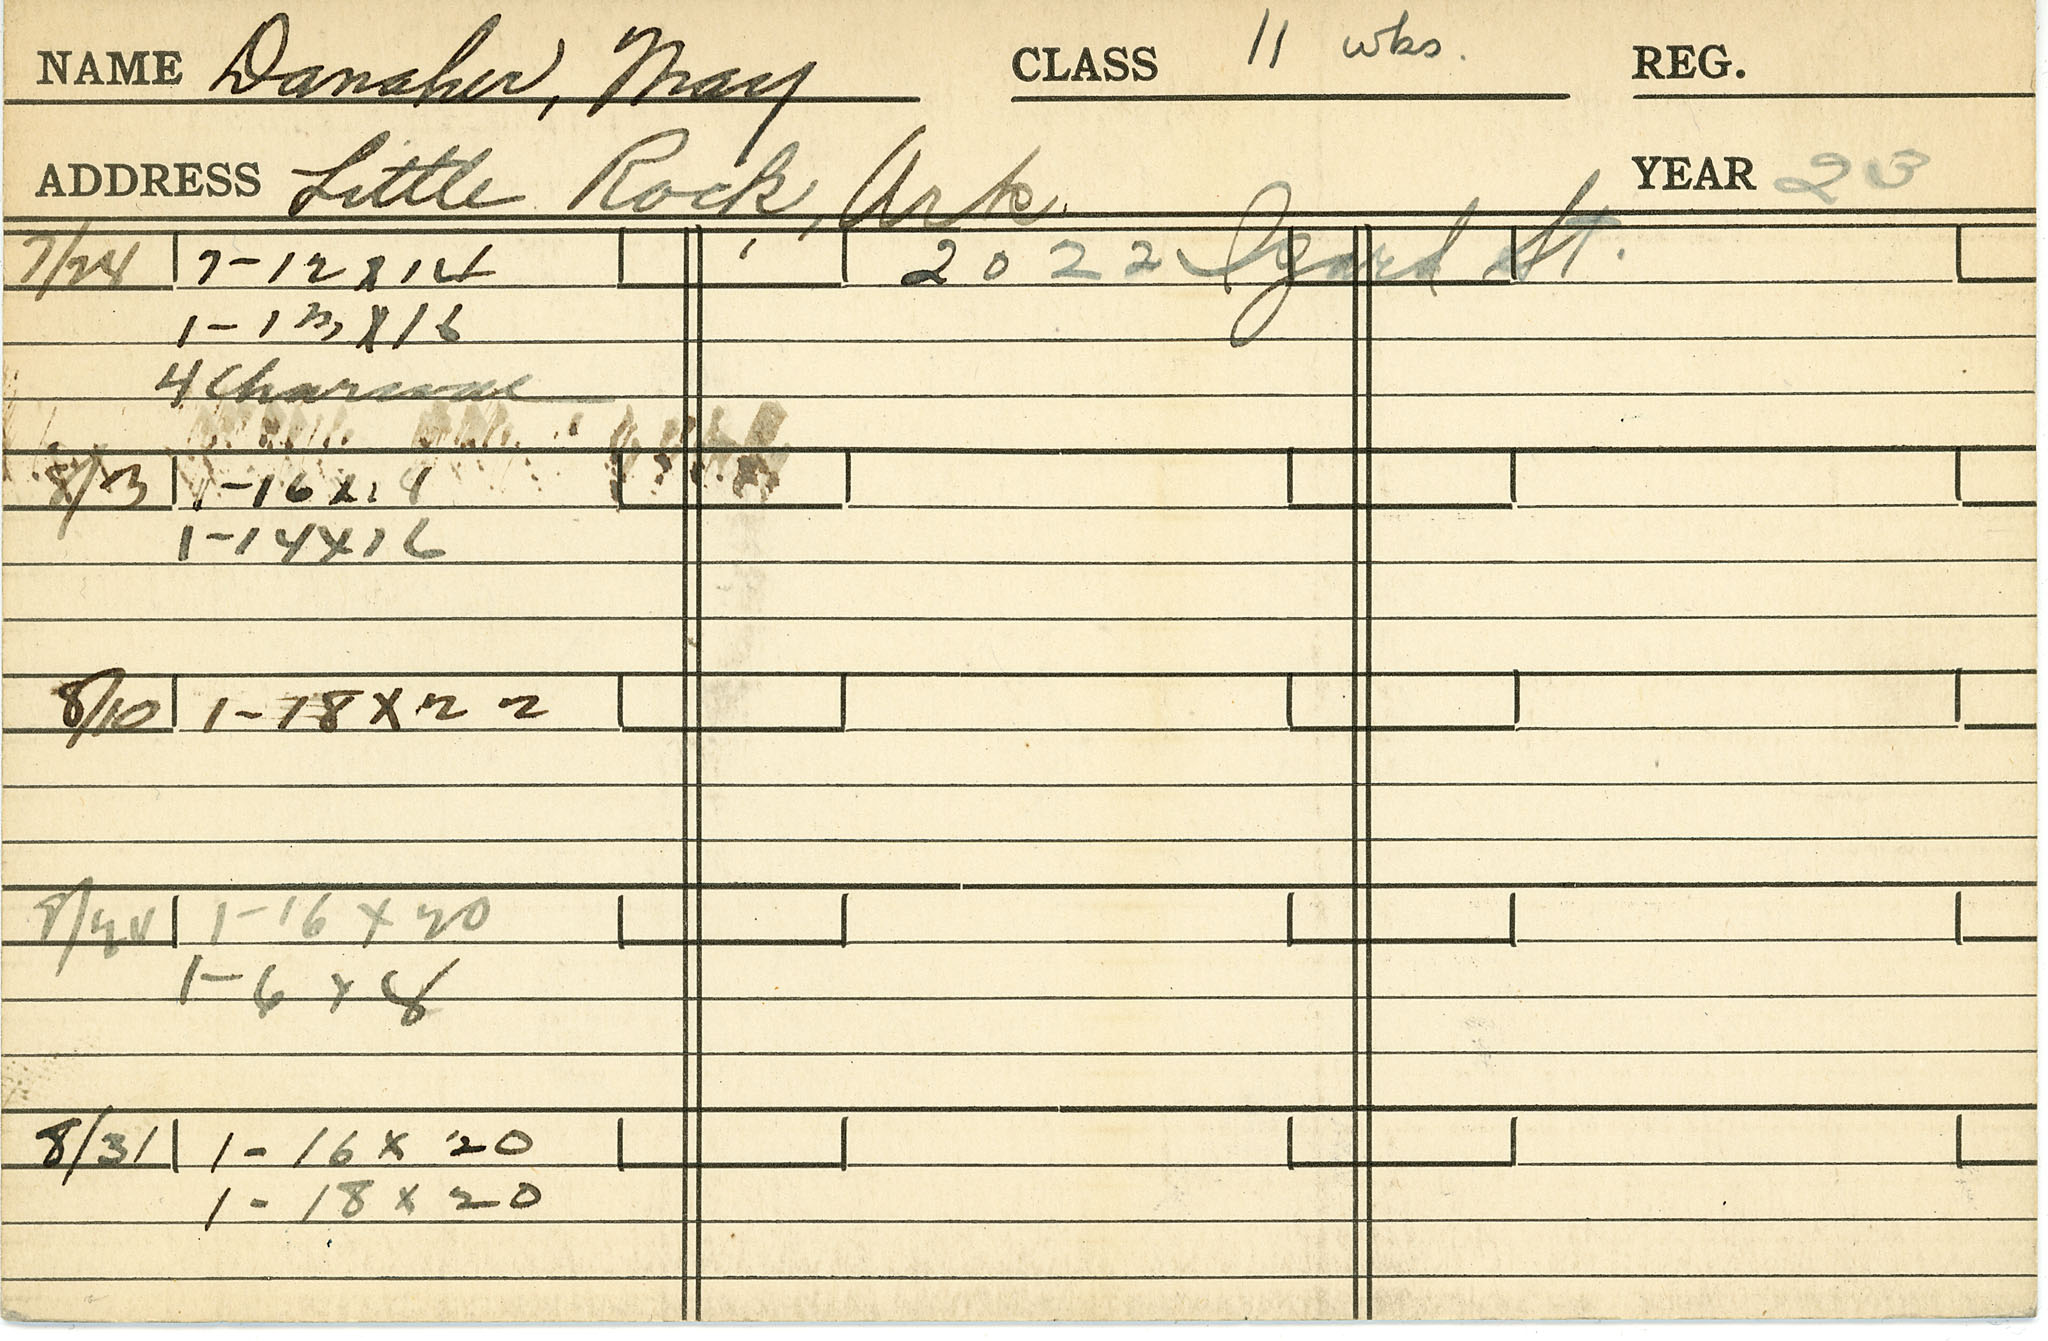 NAME Danaher, May CLASS 11 wks. REG.
ADDRESS Little Rock, Ark. YEAR 23
7/24 7-12x14 2022 Izard St.
1-12x16
4 Charcoal
8/3 1-16x
1-14x16
8/10 1-18x22
8/24 1-16x20
1-6x8
8/31 1-16x20
1-18x20